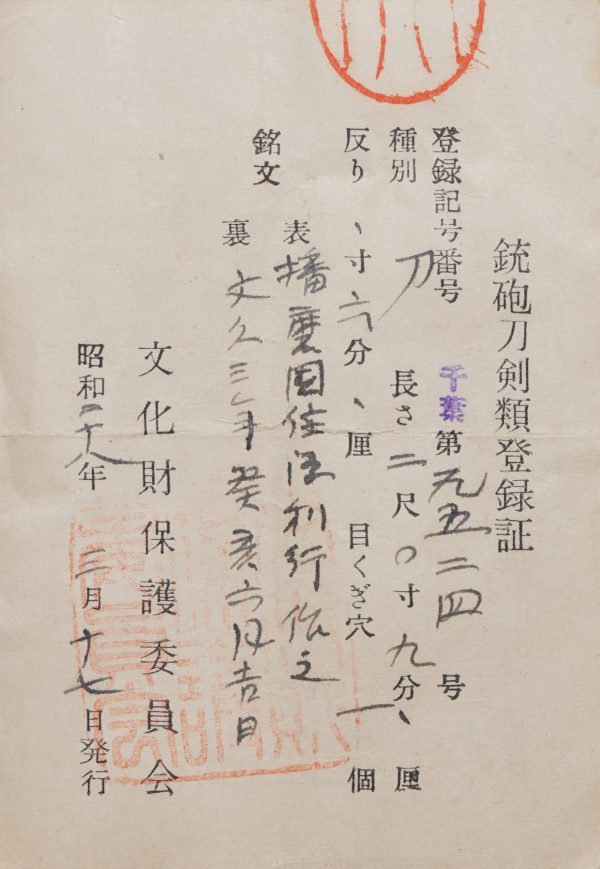 銃砲刀剣類登録証
登録記号番号 千葉第九五二四号
種別 刀 長さ二尺〇寸九分、厘
反り 、寸六分、厘 目くぎ穴 一個
銘文 表 播磨国住 利行作之
裏 文久三年癸亥六月吉日
文化財保護委員会
昭和二十八年三月十七日発行